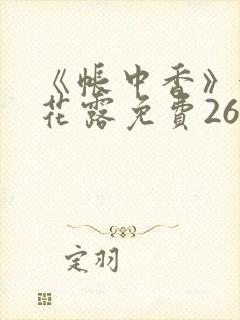 《帳中香》
花露免費26
定羽